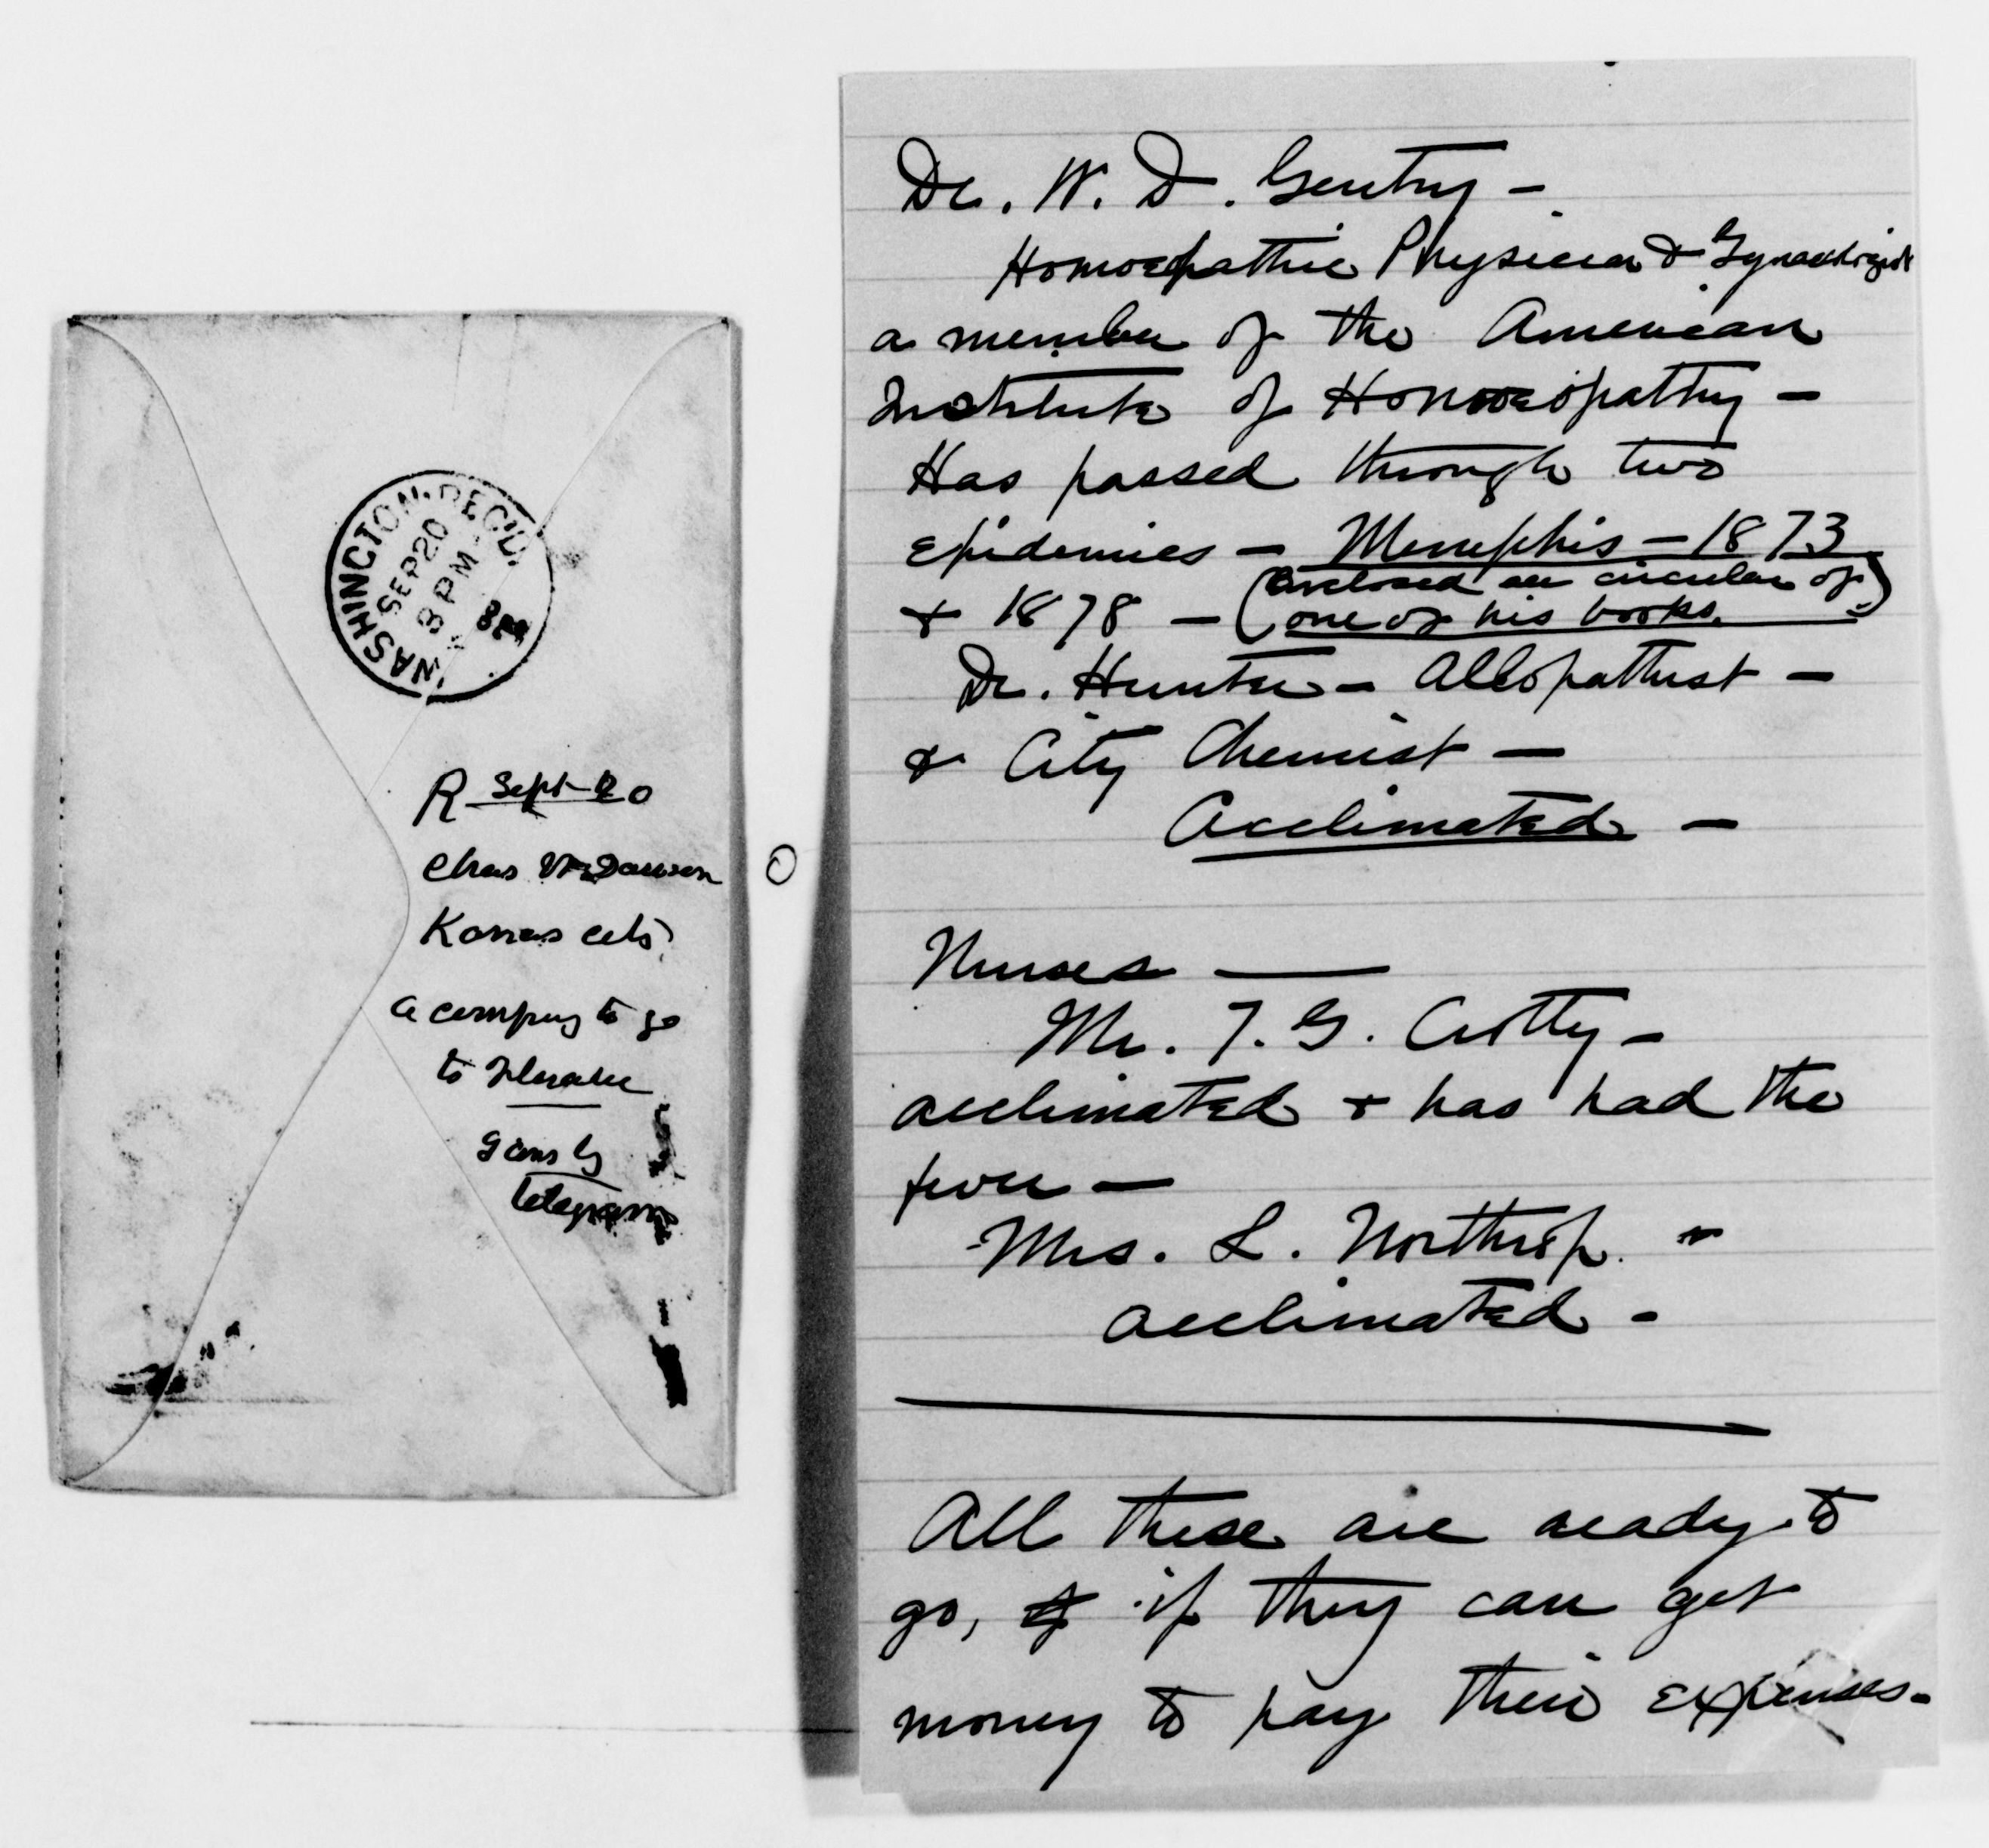 WASHINGTON, REC'D.
SEP 20
8 PM
R Sept 20
Chas W Dawson
Kansas City
a company to go
to Florida
telegram
Dr. W. D. Gentry –
Homoepathic Physician & Gynaecologist
a member of the American
Institute of Homoeopathy –
Has passed through two
Epidemics – Memphis – 1873
& 1878 – (Enclosed see circular of
one of his books.)
Dr. Hunter – Allopathist –
& City Chemist –
Acclimated –
Nurses —
Mr. T. G. Crotty –
acclimated & has had the
fever –
Mrs. L. Northrop. –
acclimated –
All these are ready to
go, if they can get
money to pay their expenses.